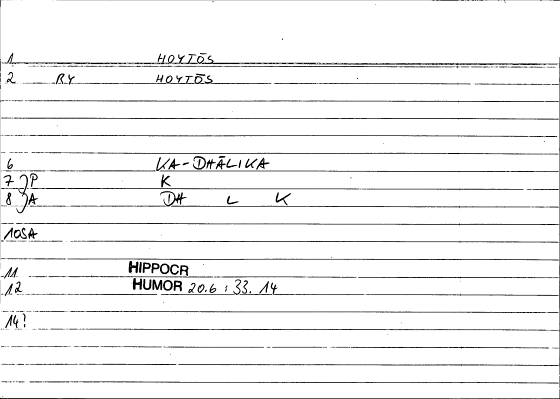 1 HOYTŌS
2 RY HOYTŌS
6 KA-DHĀLIKA
7 P K
8 A DH L K
10SA
11 HIPPOCR
12 HUMOR 20.6 : 33.14
14?